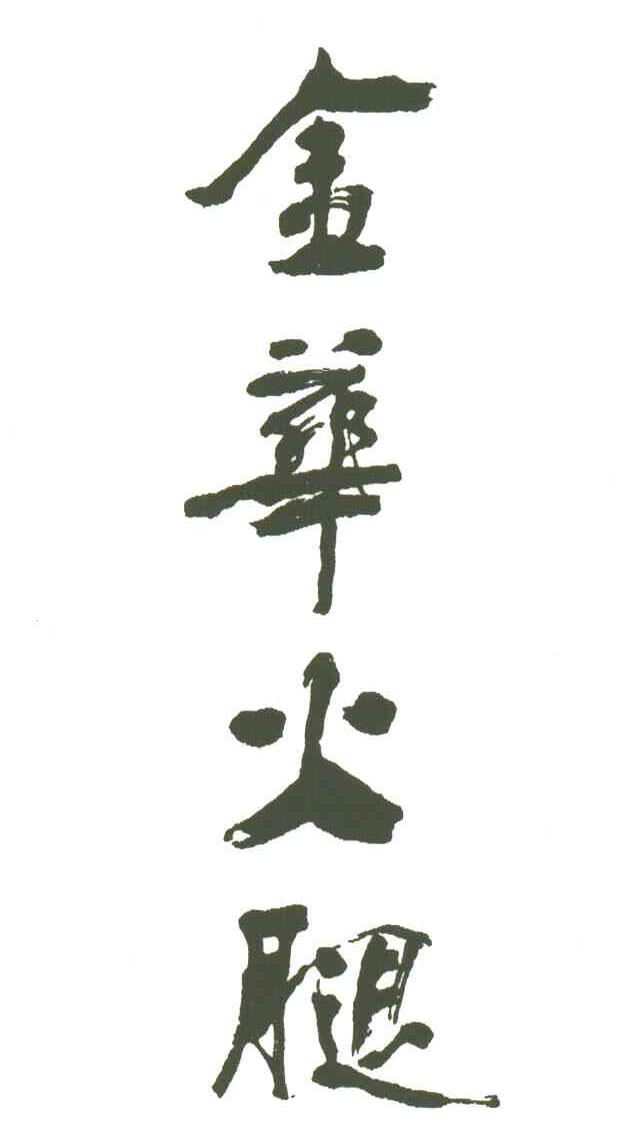 金華火腿